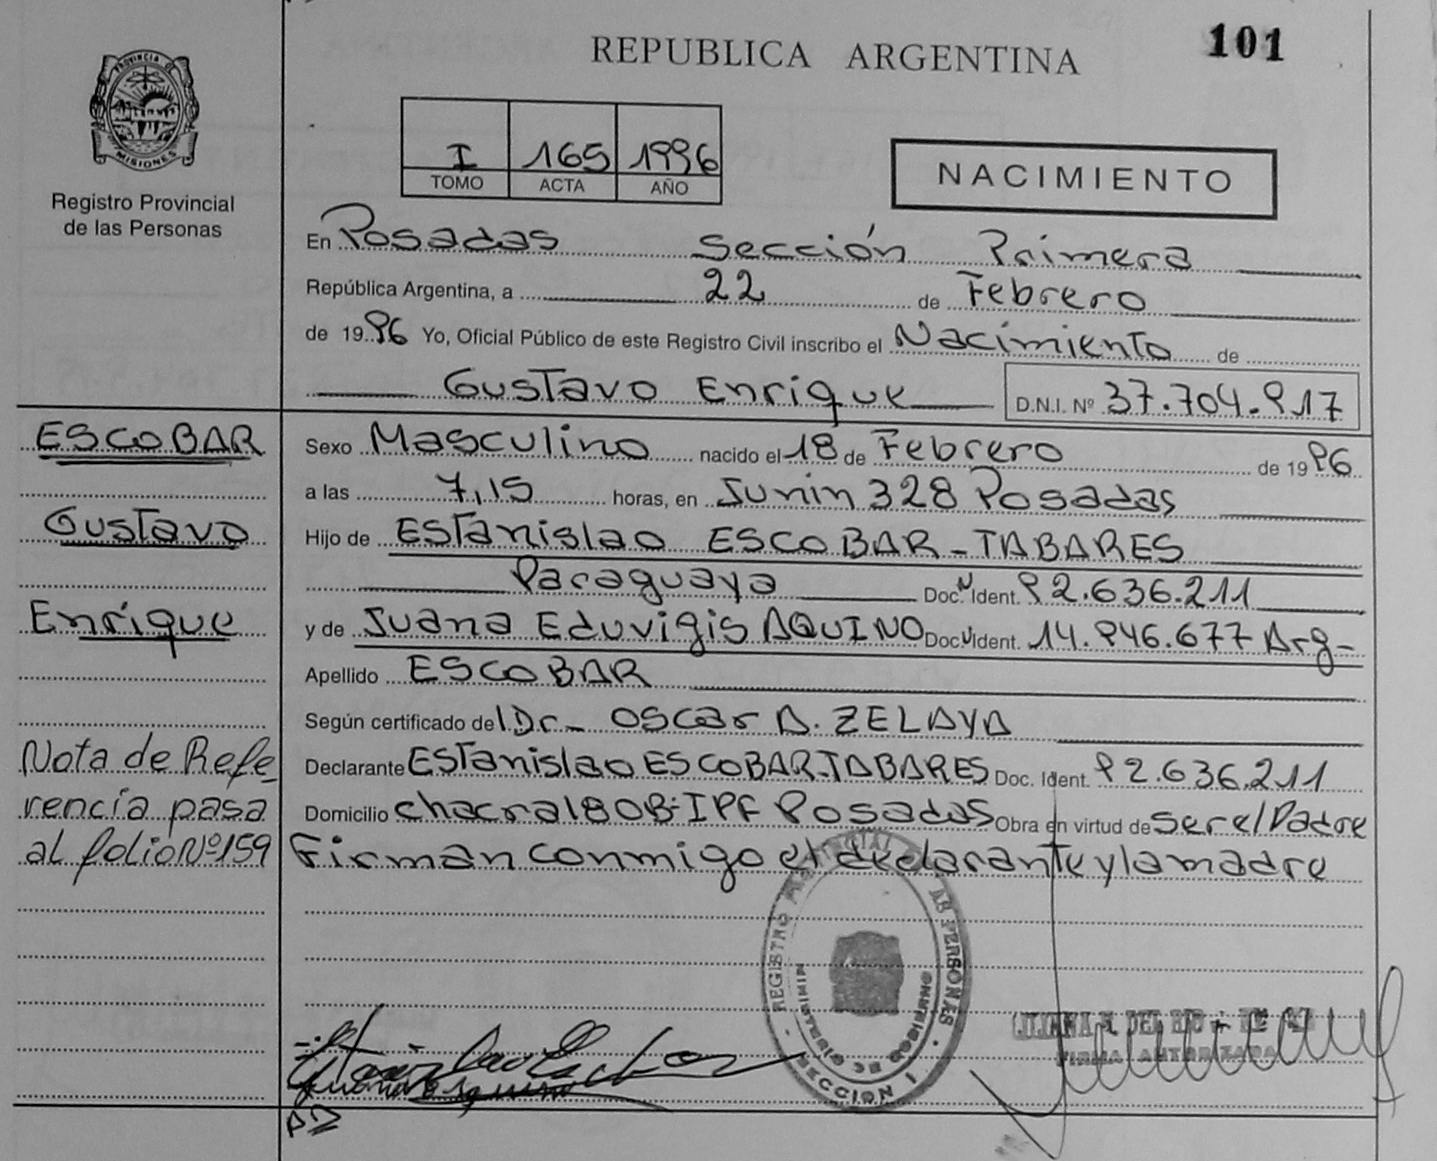 101
REPUBLICA ARGENTINA
PROVINCIA DE
MISIONES
Registro Provincial
de las Personas
I 165 1996
TOMO ACTA AÑO
NACIMIENTO
En Posadas Sección Primera
República Argentina, a 22 de Febrero
de 19 96 Yo, Oficial Público de este Registro Civil inscribo el Nacimiento de
Gustavo Enrique D.N.I. Nº 37.704.917
ESCOBAR
Gustavo
Enrique
Nota de Refe
rencia pasa
al folio Nº 159
Sexo Masculino nacido el 18 de Febrero de 19 96
a las 7,15 horas, en Junin 328 Posadas
Hijo de Estanislao ESCOBAR-TABARES
Paraguaya Doc. Ident. 92.636.211
y de Juana Eduvigis AQUINO Doc. Ident. 14.946.677 Arg-
Apellido ESCOBAR
Según certificado del Dr- Oscar A. ZELAYA
Declarante Estanislao ESCOBAR-TABARES Doc. Ident. 92.636.211
Domicilio chacra 180 B-IPF Posadas Obra en virtud de ser el Padre
Firman conmigo el declarante y la madre
REGISTRO PROVINCIAL DE LAS PERSONAS
MINISTERIO DE GOBIERNO
SECCION I
FIRMA AUTORIZADA